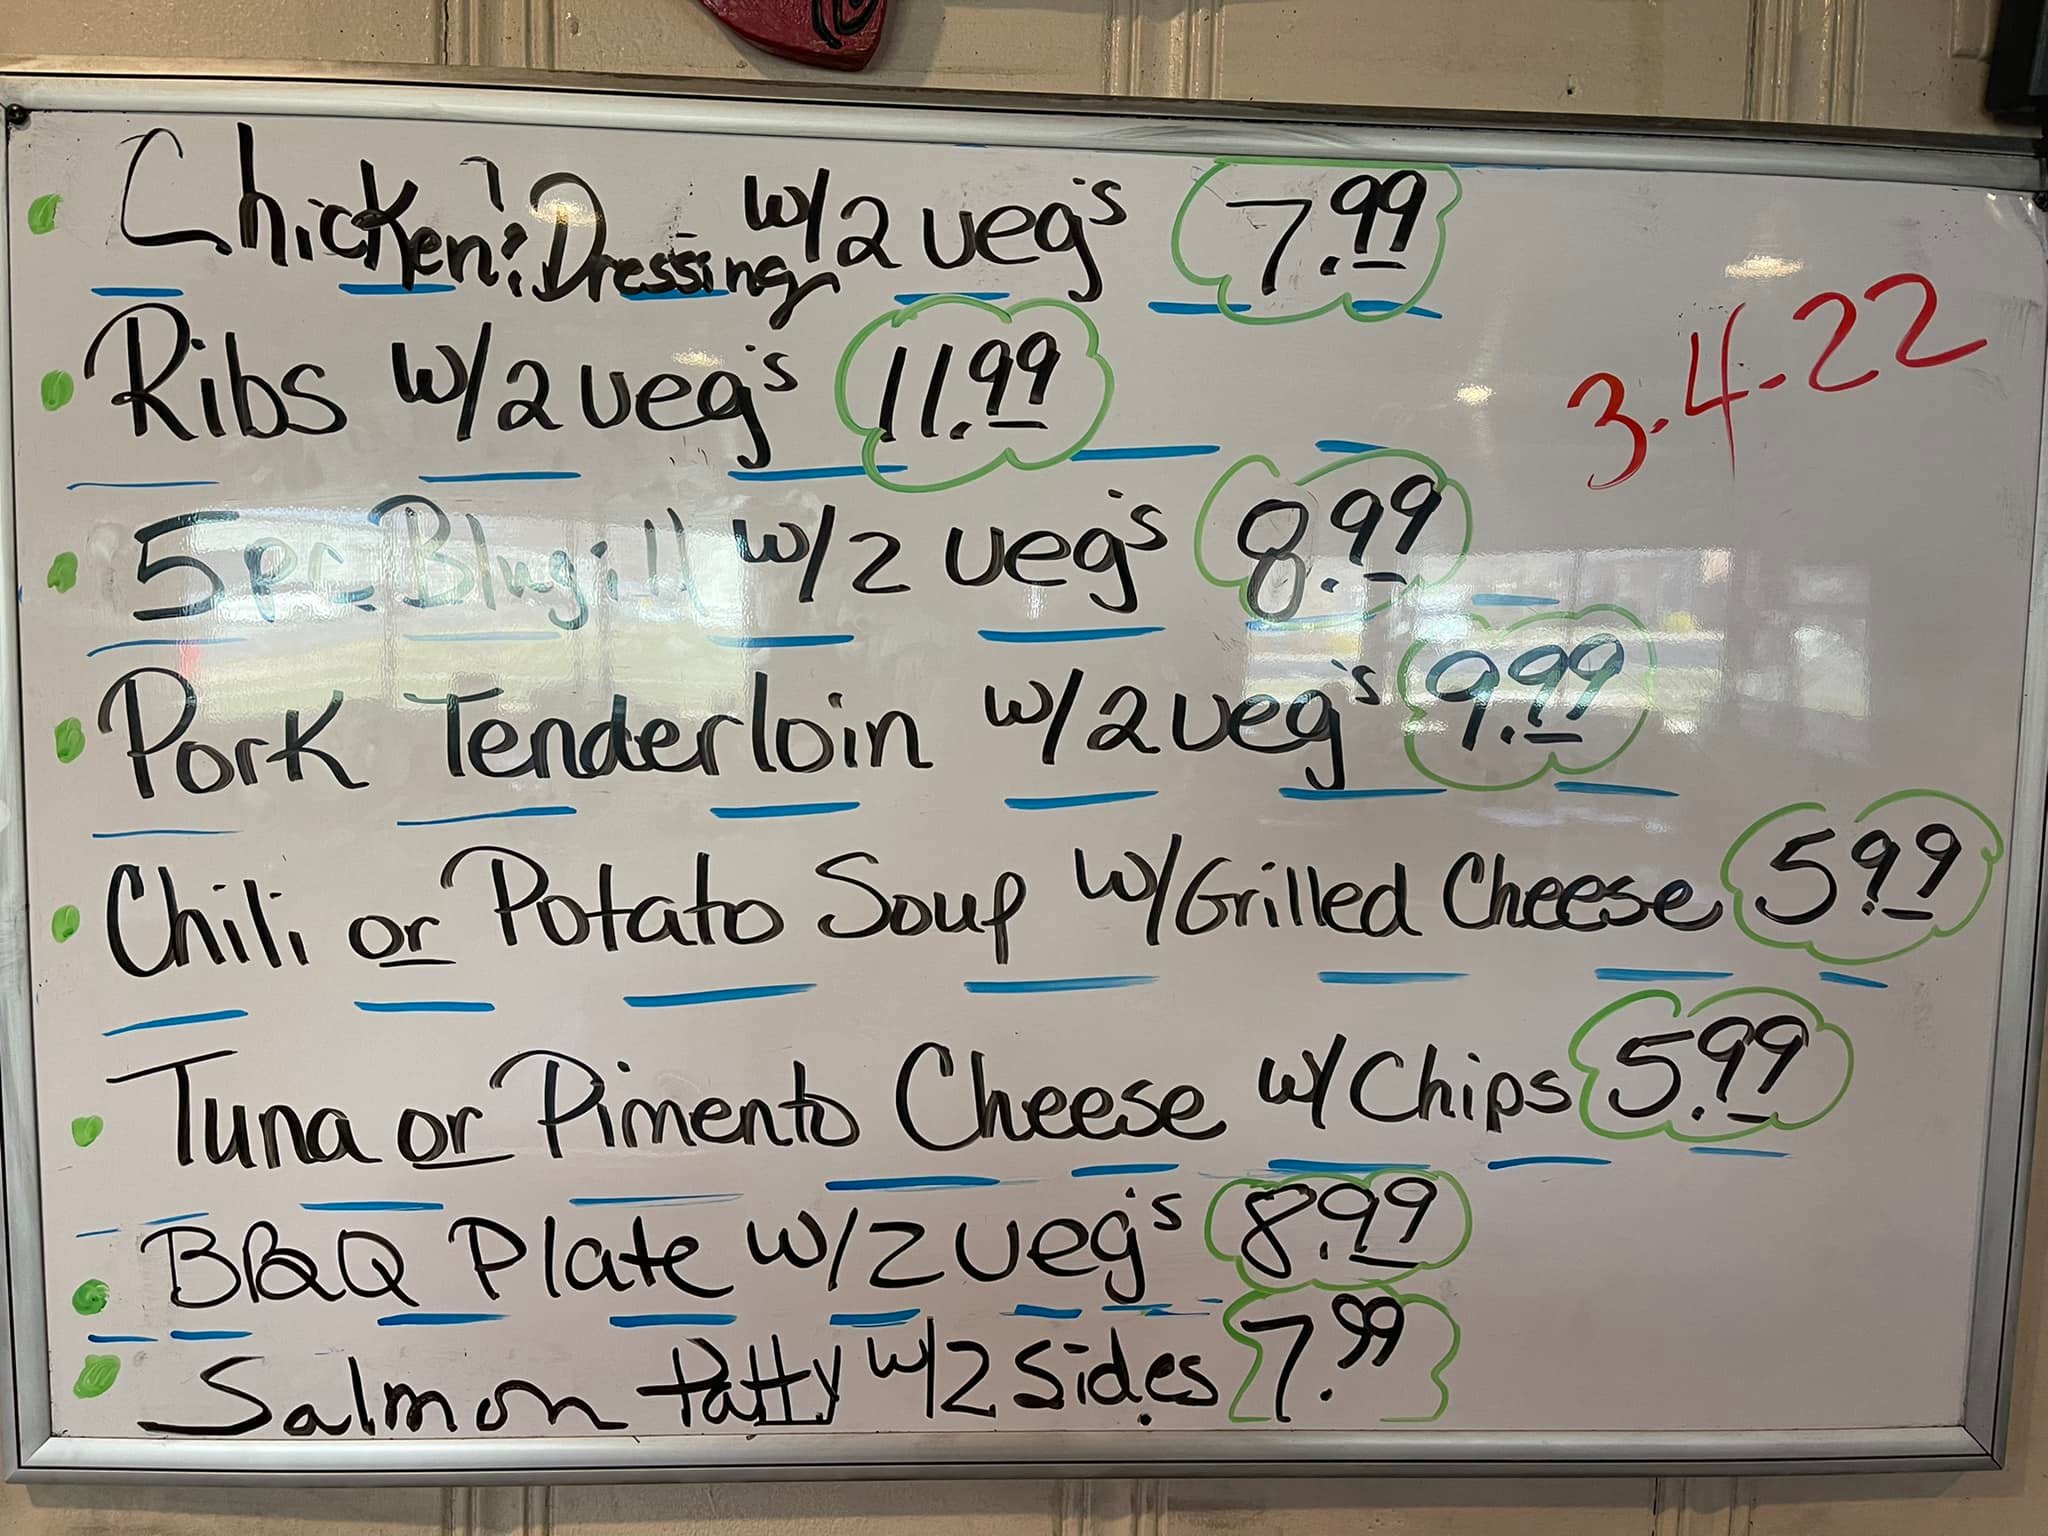 Chicken & Dressing w/2 veg's 7.99
Ribs w/2 veg's 11.99
3.4.22
5 pc. Blugill w/2 veg's 8.99
Pork Tenderloin w/2 veg's 9.99
Chili or Potato Soup w/Grilled Cheese 5.99
Tuna or Pimento Cheese w/Chips 5.99
BBQ Plate w/2 veg's 8.99
Salmon Patty w/2 Sides 7.99